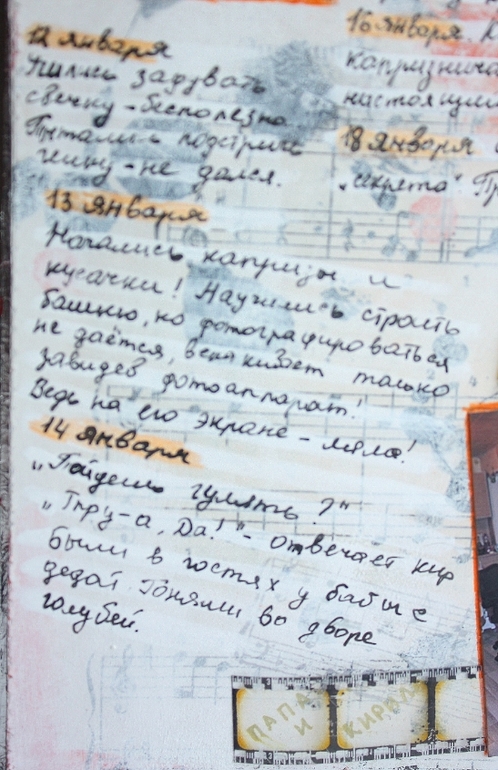 12 января
Учились задувать
свечку - бесполезно.
Пытались подстричь
чёлку - не дался.
13 января
Начались капризы и
кусачки! Научились строить
башню, но фотографироваться
не даётся, вскакивает только
завидев фотоаппарат!
Ведь на его экране - ляля!
14 января
„Пойдешь гулять?"
„Тпру-а, Да!" - отвечает Кир
Были в гостях у бабы с
дедой. Гоняли во дворе
голубей.
16 января. К
капризнича
настоящи
18 января
„секрета". Пр
ПАПА
И
КИРЮША